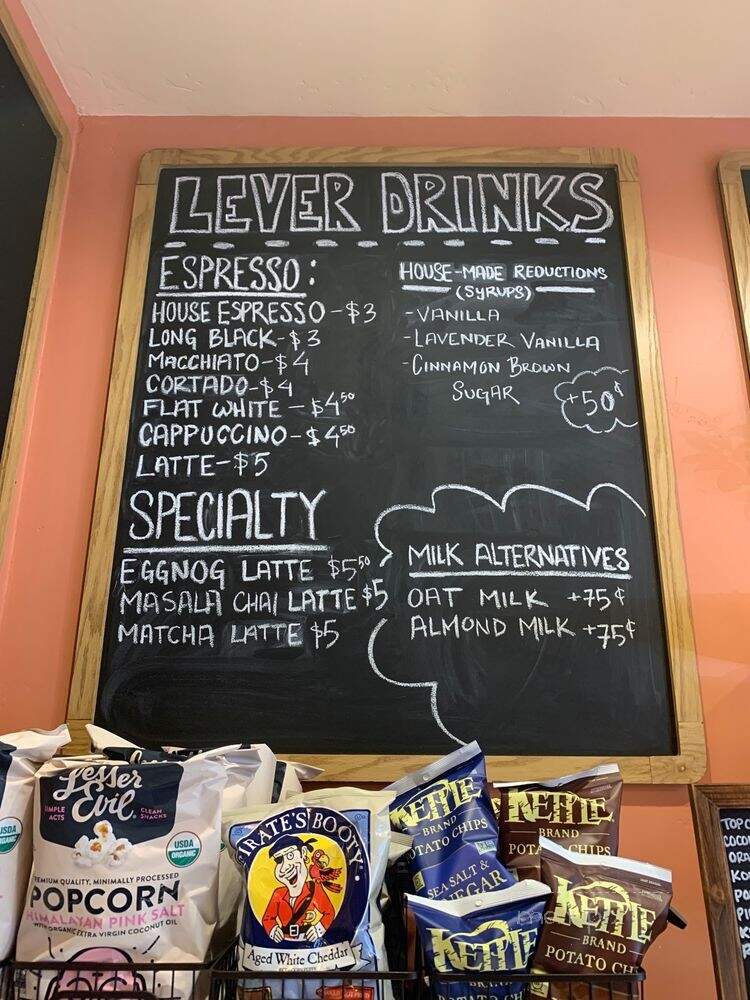 LEVER DRINKS
ESPRESSO:
HOUSE ESPRESSO - $3
LONG BLACK - $3
MACCHIATO - $4
CORTADO - $4
FLAT WHITE - $4⁵⁰
CAPPUCCINO - $4⁵⁰
LATTE - $5
HOUSE-MADE REDUCTIONS
(SYRUPS)
- VANILLA
- LAVENDER VANILLA
- CINNAMON BROWN
SUGAR
+50¢
SPECIALTY
EGGNOG LATTE $5⁵⁰
MASALA CHAI LATTE $5
MATCHA LATTE $5
MILK ALTERNATIVES
OAT MILK +75¢
ALMOND MILK +75¢
Lesser
Evil
SIMPLE
ACTS
CLEAN
SNACKS
USDA
ORGANIC
PREMIUM QUALITY, MINIMALLY PROCESSED
POPCORN
HIMALAYAN PINK SALT
WITH ORGANIC EXTRA VIRGIN COCONUT OIL
PIRATE'S BOOTY
Aged White Cheddar
KETTLE
BRAND
POTATO CHIPS
SEA SALT &
VINEGAR
KETTLE
BRAND
POTATO CHIPS
KETTLE
BRAND
KETTLE
BRAND
POTATO CH